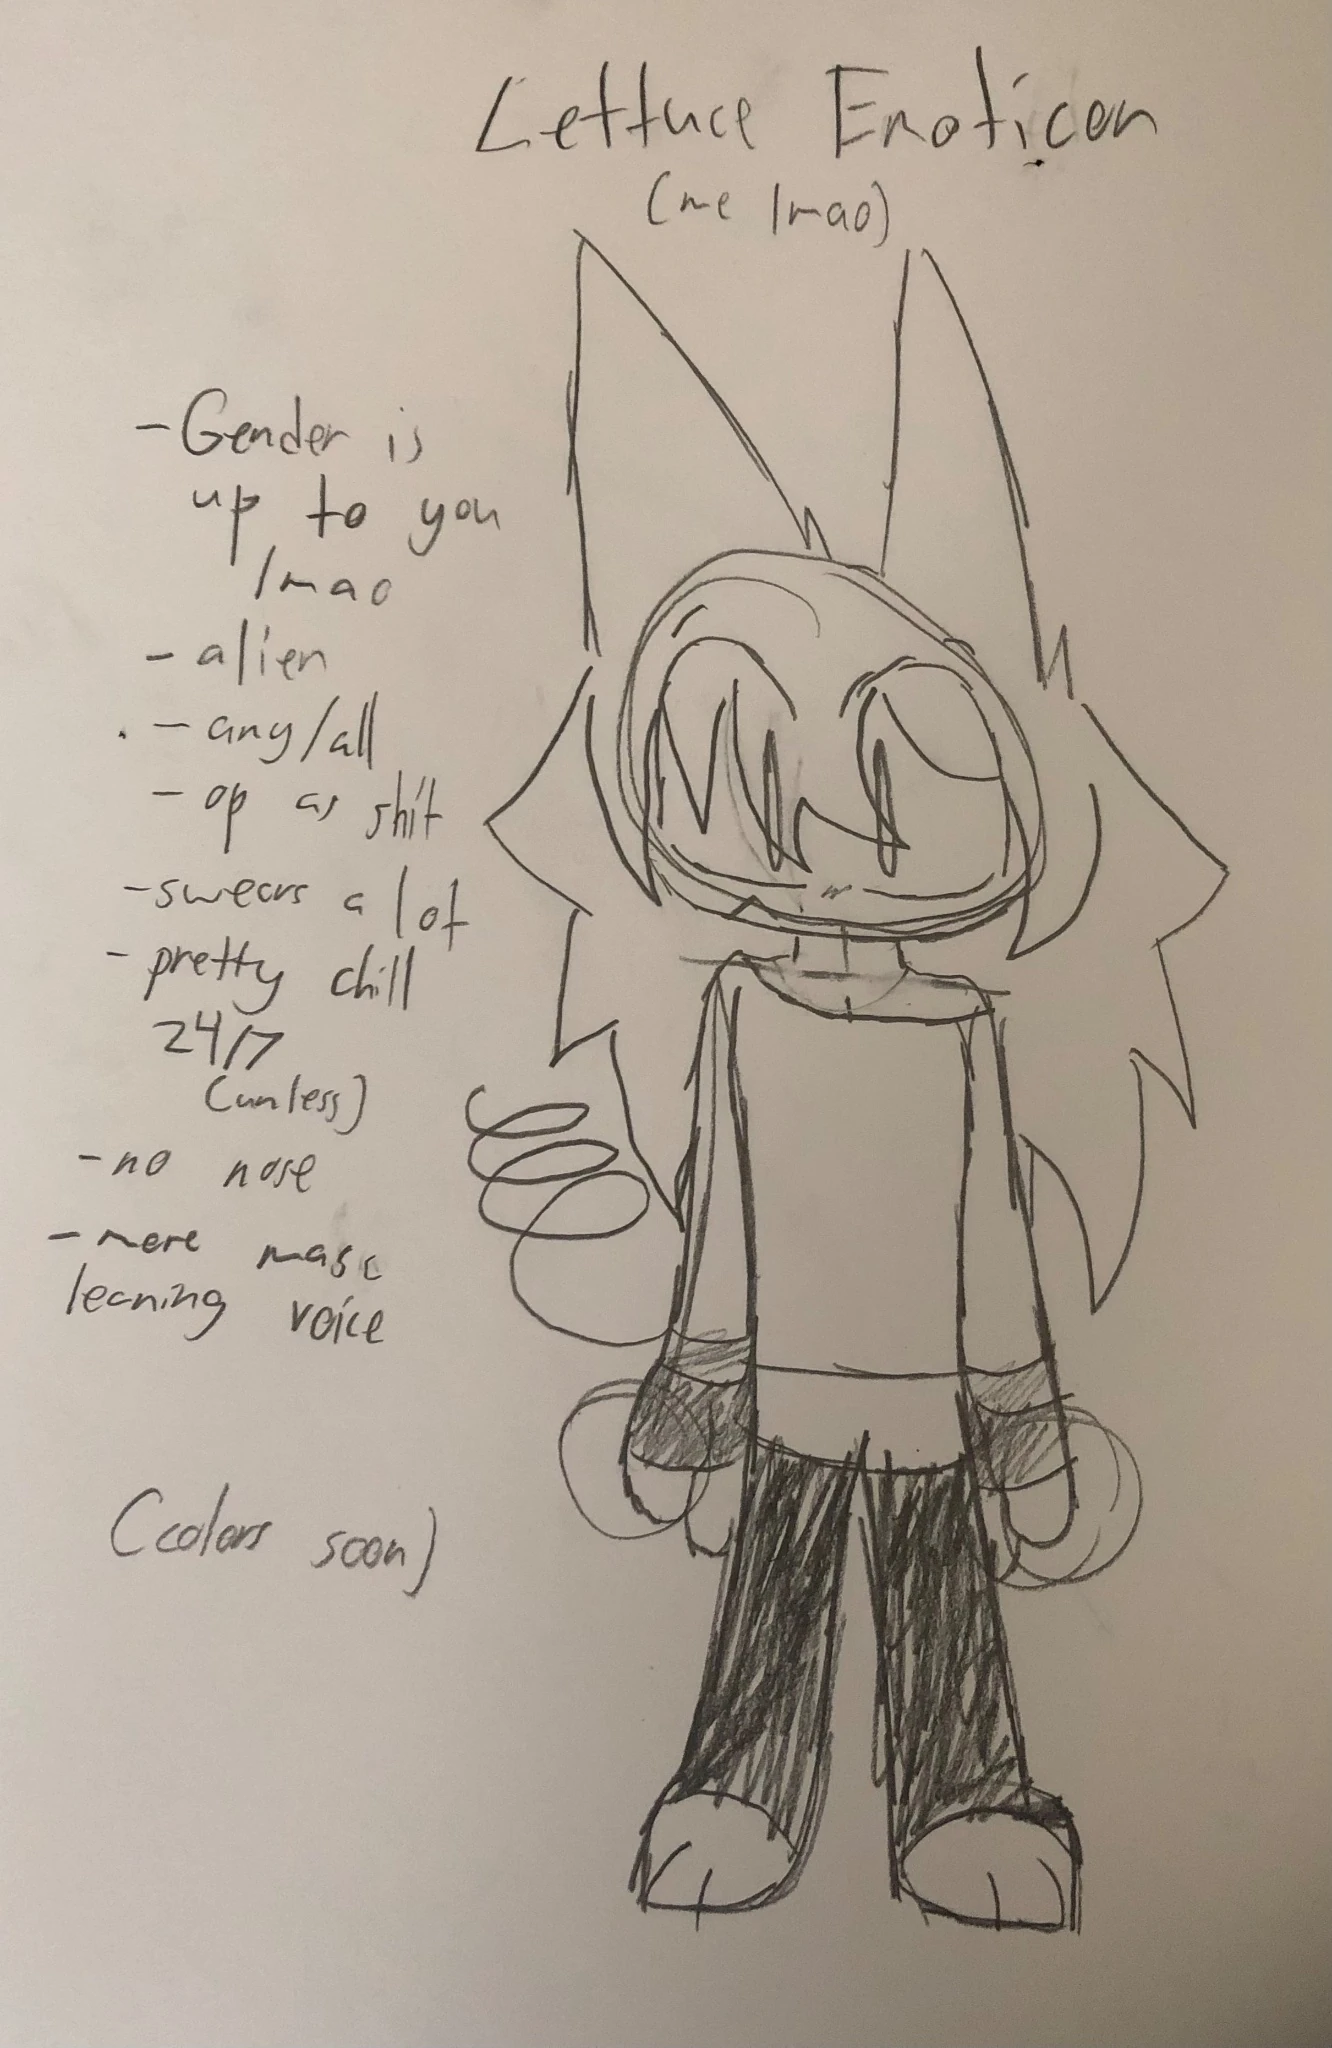 Lettuce Emoticon
(me lmao)
- Gender is
up to you
lmao
- alien
- any/all
- op as shit
- swears a lot
- pretty chill
24/7
(unless)
- no nose
- more masc
leaning voice
(colors soon)